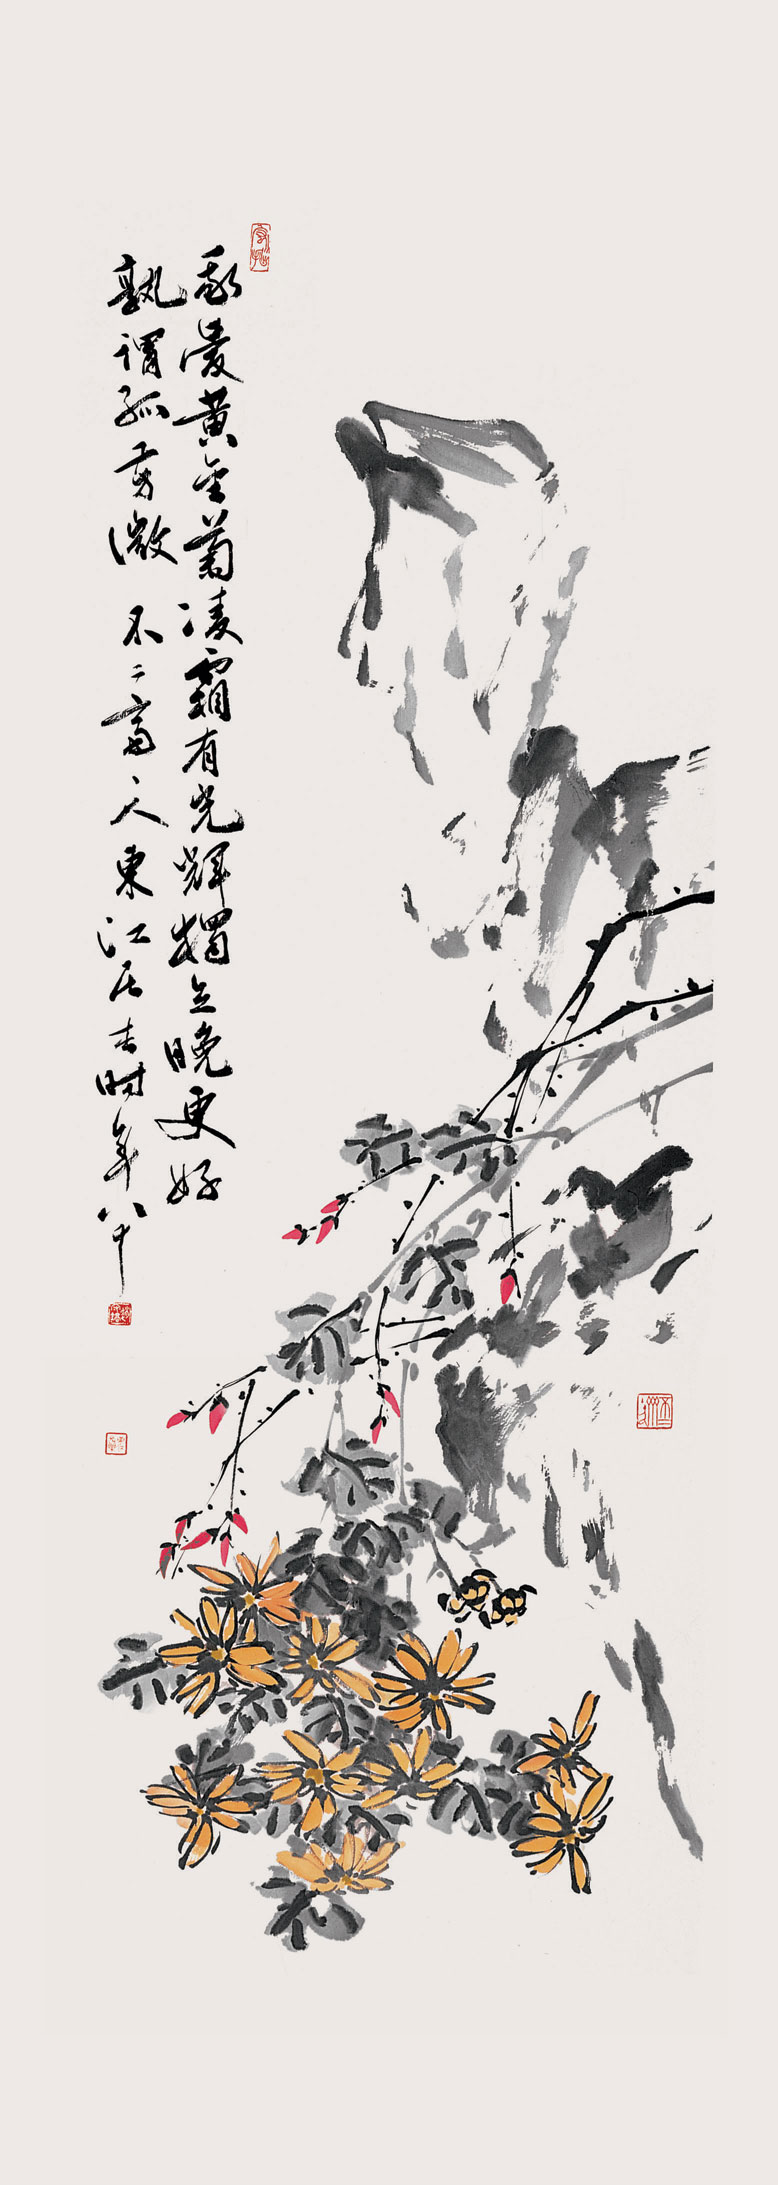 我爱黄金菊凌霜有光辉独立晚更好
孰谓孤芳微 不二斋主人东江居士时年八十